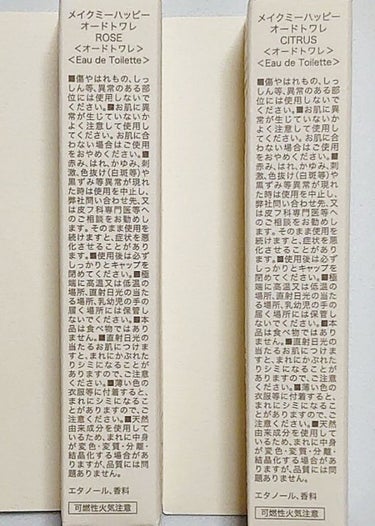 メイクミーハッピー
オードトワレ
ROSE
<オードトワレ>
<Eau de Toilette>
■傷やはれもの、しっ
しん等、異常のある部
位には使用しないで
ください。■お肌に異
常が生じていないか
よく注意して使用し
てください。お肌に合
わない場合はご使用
をおやめください。■
赤み、はれ、かゆみ、刺
激、色抜け(白斑等)や
黒ずみ等異常が現れ
た時は使用を中止し、
弊社問い合わせ先、又
は皮フ科専門医等へ
のご相談をお勧めし
ます。そのまま使用を
続けますと、症状を悪
化させることがあり
ます。■使用後は必ず
しっかりとキャップを
閉めてください。■極
端に高温又は低温の
場所、直射日光の当た
る場所、乳幼児の手の
届く場所には保管し
ないでください。■本
品は食べ物ではあり
ません。■直射日光の
当たるお肌につけま
すと、まれにかぶれた
りシミになることが
ありますので、ご注意
ください。■薄い色の
衣服等に付着すると、
まれにシミになるこ
とがありますので、ご
注意ください。■天然
由来成分を使用して
いるため、まれに中身
が変色・変質・分離・
結晶化する場合があ
りますが、品質には問
題ありません。
エタノール、香料
可燃性火気注意
メイクミーハッピー
オードトワレ
CITRUS
<オードトワレ>
<Eau de Toilette>
■傷やはれもの、しっ
しん等、異常のある部
位には使用しないで
ください。■お肌に異
常が生じていないか
よく注意して使用し
てください。お肌に合
わない場合はご使用
をおやめください。■
赤み、はれ、かゆみ、刺
激、色抜け(白斑等)や
黒ずみ等異常が現れ
た時は使用を中止し、
弊社問い合わせ先、又
は皮フ科専門医等へ
のご相談をお勧めし
ます。そのまま使用を
続けますと、症状を悪
化させることがあり
ます。■使用後は必ず
しっかりとキャップを
閉めてください。■極
端に高温又は低温の
場所、直射日光の当た
る場所、乳幼児の手の
届く場所には保管し
ないでください。■本
品は食べ物ではあり
ません。■直射日光の
当たるお肌につけま
すと、まれにかぶれた
りシミになることが
ありますので、ご注意
ください。■薄い色の
衣服等に付着すると、
まれにシミになるこ
とがありますので、ご
注意ください。■天然
由来成分を使用して
いるため、まれに中身
が変色・変質・分離・
結晶化する場合があ
りますが、品質には問
題ありません。
エタノール、香料
可燃性火気注意